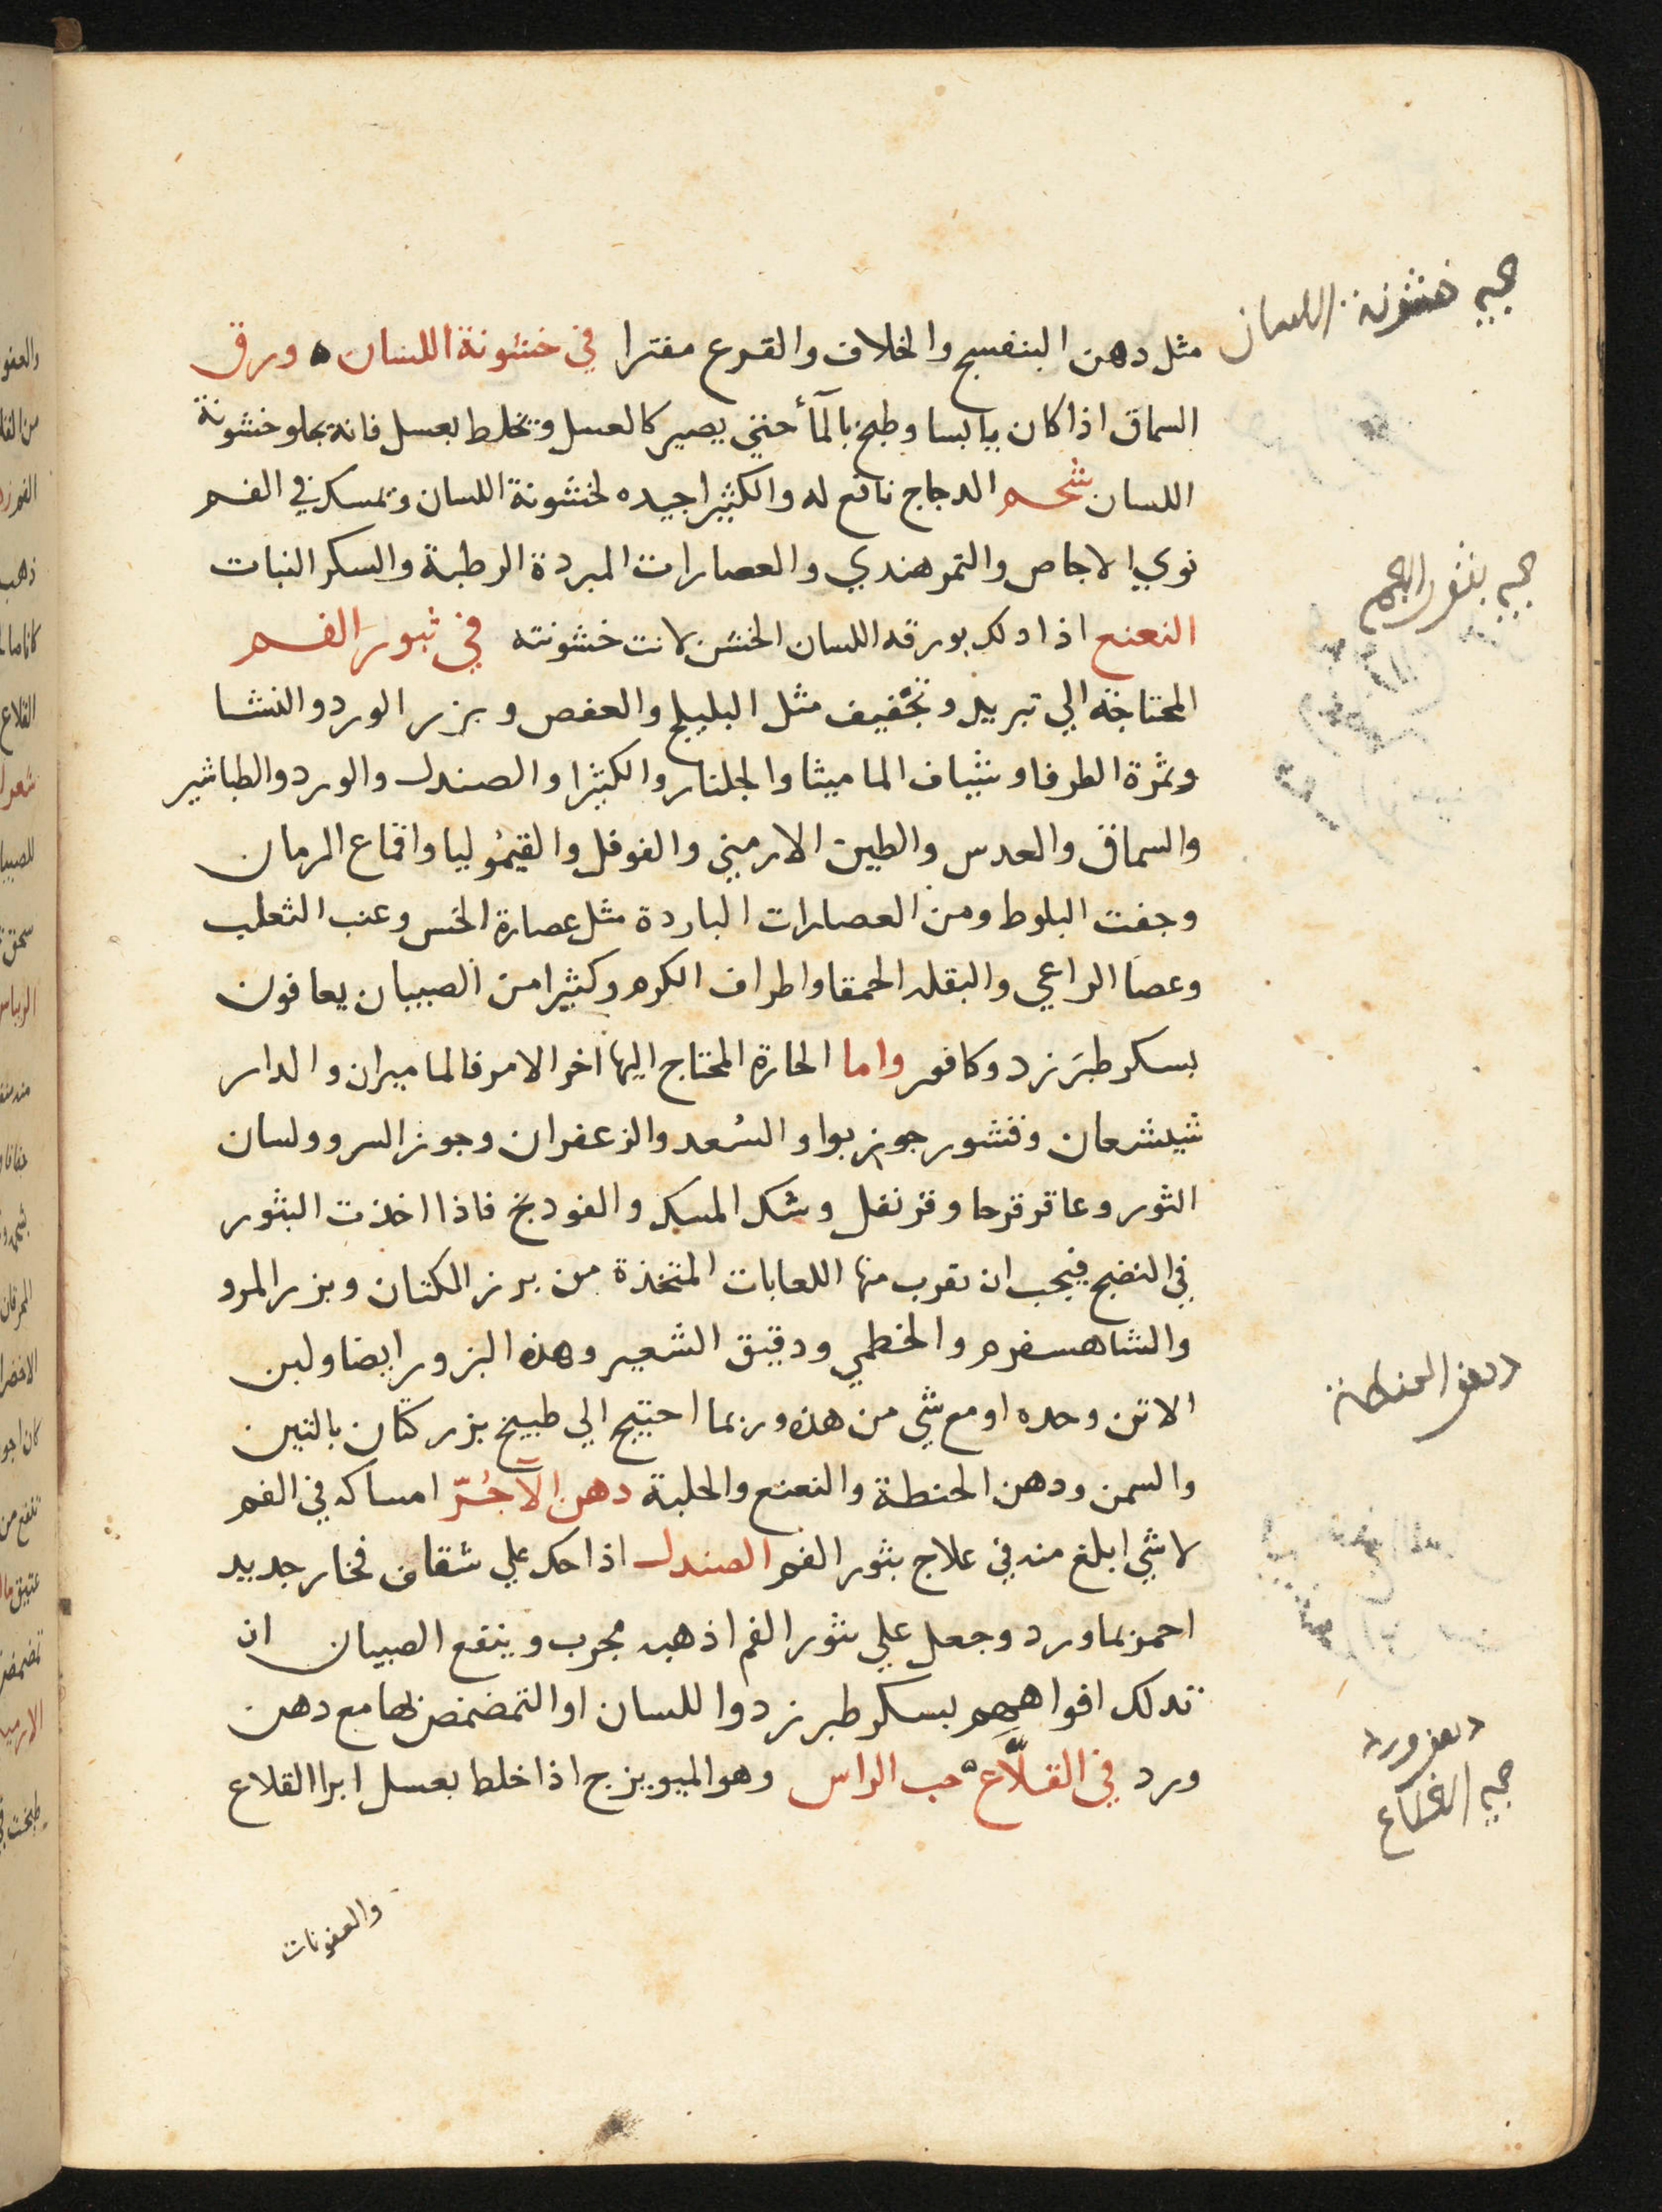 مثل دهن البنفسج والخلاف والقرع مفترا في خشونة اللسان ه ورق
السماق اذا كان يابسا وطبخ بالمآء حتي يصير كالعسل ويخلط بعسل فانه يجلو خشونة
اللسان شحم الدجاج نافع له والكثيرا جيده لخشونة اللسان وتمسك في الفم
نوي الاجاص والتمر هندي والعصارات المبردة الرطبة والسكر النبات
النعنع اذا دلك بورقه اللسان الخشن لانت خشونته في ثبور الفم
المحتاجة الي تبريد وتجفيف مثل البليلج والعفص وبزر الورد والنشا
وثمرة الطرفا وشياف الماميثا والجلنار والكثيرا والصندل والورد والطباشير
والسماق والعدس والطين الارميني والفوفل والقيموليا واقماع الرمان
وجفت البلوط ومن العصارات الباردة مثل عصارة الخس وعنب الثعلب
وعصا الراعي والبقله الحمقا واطراف الكرم وكثيرا من الصبيان يعافون
بسكر طبرزد وكافور واما الحارة المحتاج اليها اخر الامر فالماميران والدار
شيشرعان وقشور جوز بوا والسعد والزعفران وجوز السرو ولسان
الثور وعاقر قرحا وقرنفل وشك المسك والفودنج فاذا اخذت البثور
في النضج فيجب ان تقرب منها اللعابات المتخذة من برز الكتان وبزر المرو
والشاهسفرم والخطمي ودقيق الشعير وهذه البزور ايضا ولبن
الاتن وحده او مع شي من هذه وربما احتيج الي طبيخ بزر كتان بالتين
والسمن ودهن الحنطة والنعنع والحلبة دهن الآجُرّ امساكه في الفم
لا شي ابلغ منه في علاج بثور الفم الصندل اذا حك علي شقاف فخار جديد
احمر بماورد وجعل علي بثور الفم اذهبه مجرب وينفع الصبيان ان
تدلك افواههم بسكر طبرزد واللسان او التمضمض بها مع دهن
ورد في القلّاع ه حب الراس وهو الميويزج اذا خلط بعسل ابرا القلاع
والعفونات
خشونة اللسان